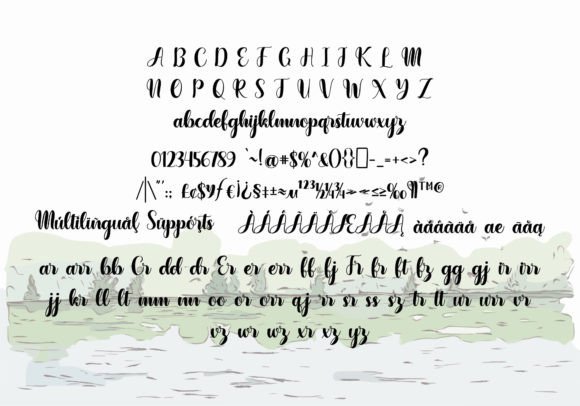 A B C D E F G H I J K L M
N O P Q R S T U V W X Y Z
abcdefghijklmnopqrstuvwxyz
0123456789 `~!@#$%^&(){}[]-_=+<>?
/|\"':; £¢$¥ƒ€¡¿§‡±≈µ¹²³½¼¾≤≥‰¶™®
Multilingual Supports ae
ar arr bb Cr dd dr Er er err ff fj Fr fr ft fz gg gj ir irr
jj kr ll lt mm nn oo or orr qj rr sr ss sz tr tt ur urr vr
vz wr wz xr xz yz